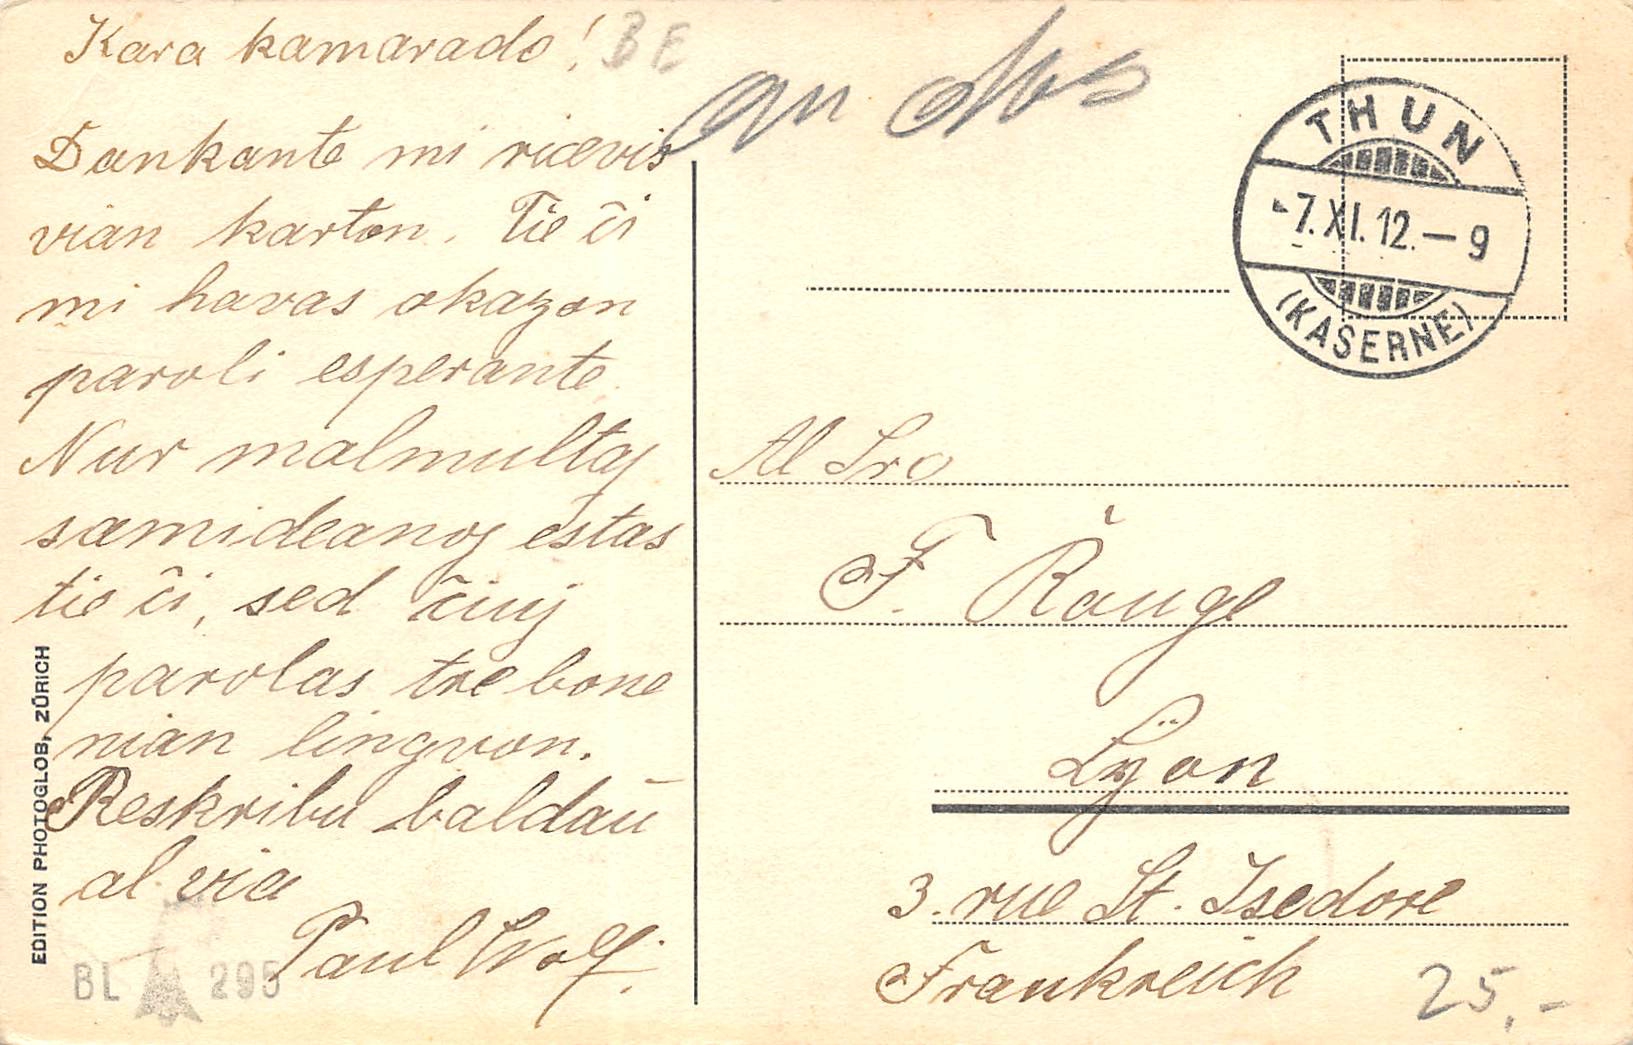 Kara kamarado!
BE
Dankante mi ricevis
vian karton. Tie ĉi
mi havas okazon
paroli esperante.
Nur malmultaj
samideanoj estas
tie ĉi, sed ĉiuj
parolas tre bone
nian lingvon.
Reskribu baldaŭ
al via
Paul Wolf.
BL 295
EDITION PHOTOGLOB, ZÜRICH
au dos
THUN
-7.XI.12.-9
(KASERNE)
Al Sro
F. Rouge
Lÿon
3. rue St. Isedore
Frankreich
25,-